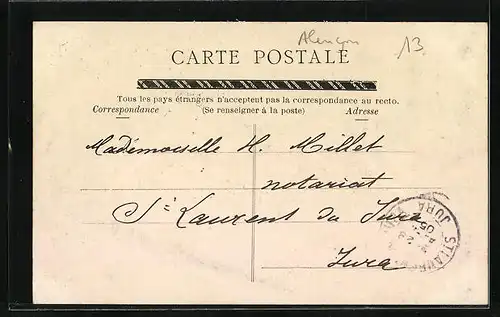 Alençon
13
CARTE POSTALE
Tous les pays étrangers n'acceptent pas la correspondance au recto.
Correspondance (Se renseigner à la poste) Adresse
Mademoiselle H. Millet
notariat
St Laurent du Jura
Jura
ST LAURENT
JURA
05